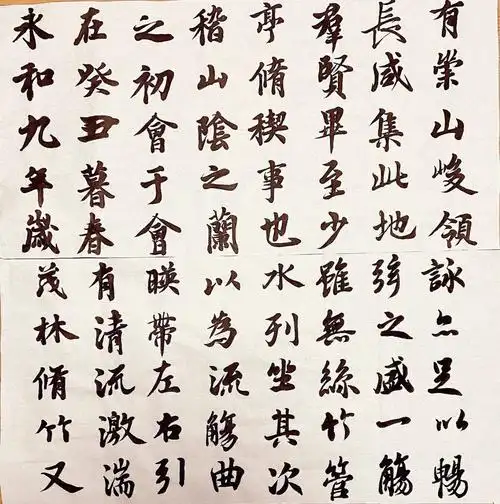 永和九年歲
在癸丑暮春
之初會于會
稽山陰之蘭
亭脩稧事也
羣賢畢至少
長咸集此地
有崇山峻領
茂林脩竹又
有清流激湍
暎帶左右引
以為流觴曲
水列坐其次
雖無絲竹管
弦之盛一觴
詠亦足以暢